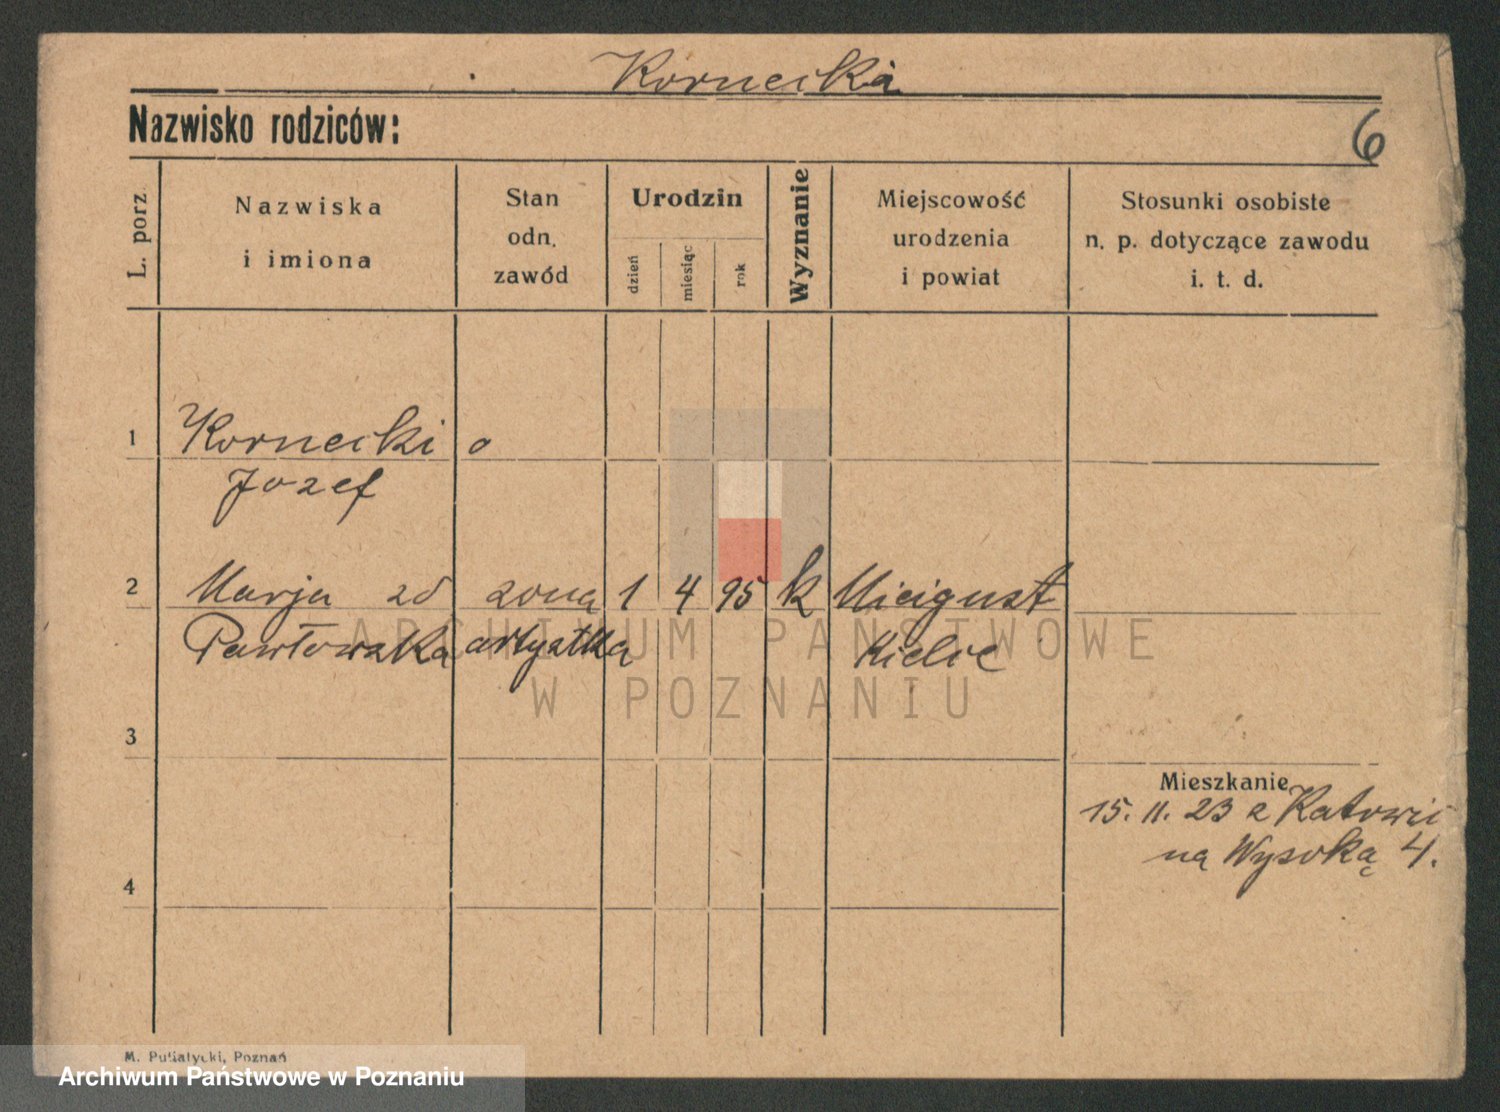 Kornecka
Nazwisko rodziców:
6
L. porz.
Nazwiska
i imiona
Stan
odn.
zawód
Urodzin
dzień
miesiąc
rok
Wyznanie
Miejscowość
urodzenia
i powiat
Stosunki osobiste
n. p. dotyczące zawodu
i. t. d.
1 Kornecki o
Jozef
2 Marja zd zona 1 4 95 k
Pawłowska artystka Kielce
3
4
Mieszkanie
15. 11. 23 z Katowic
na Wysoką 4.
M. Putiatycki, Poznań
ARCHIWUM PAŃSTWOWE
W POZNANIU
Archiwum Państwowe w Poznaniu